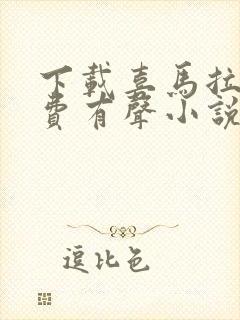 下載喜馬拉
費有聲小說
逗比色